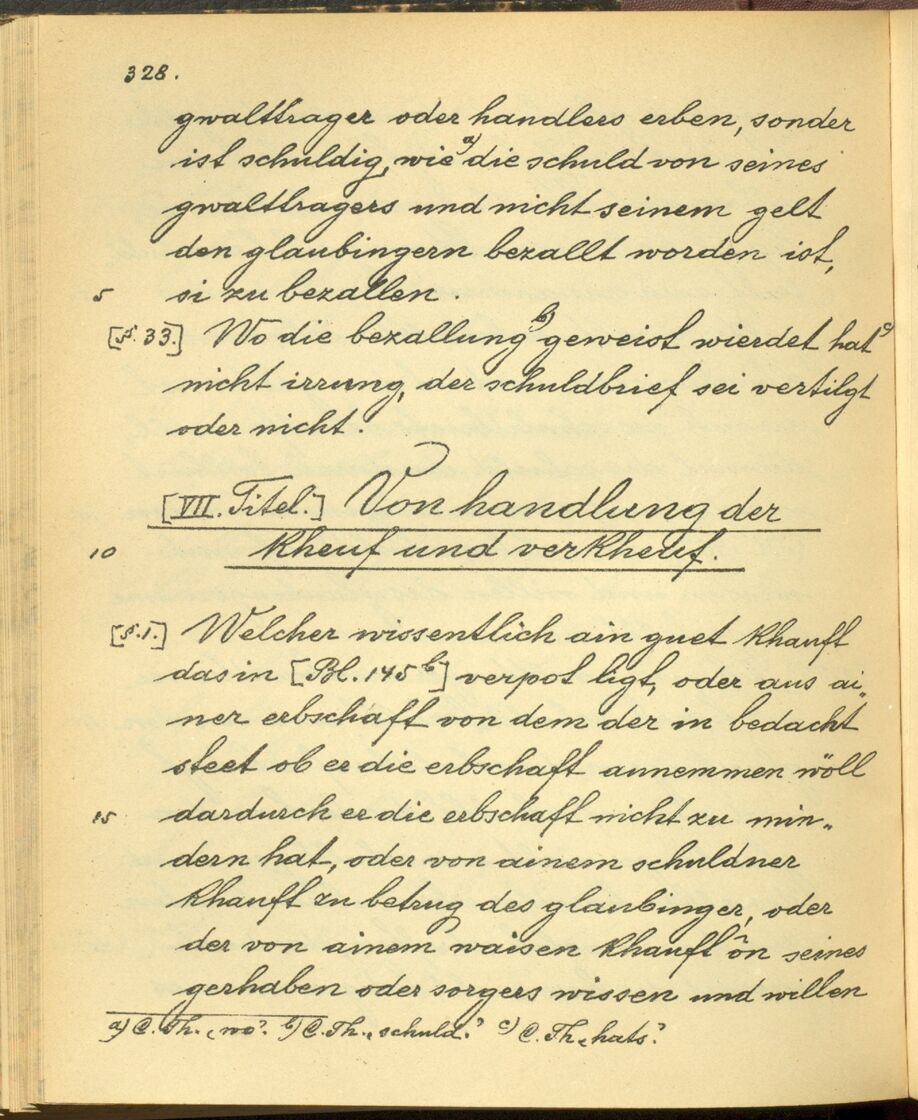 328.
gwalttrager oder handlers erben, sonder
ist schuldig, wie a) die schuld von seines
gwalttragers und nicht seinem gelt
den glaubingern bezallt worden ist,
5 si zu bezallen.
[§. 33.] Wo die bezallung b) geweist wierdet hat c)
nicht irrung, der schuldbrief sei vertilgt
oder nicht.
[VII. Titel.] Von handlung der
10 kheuf und verkheuf.
[§. 1.] Welcher wissentlich ain guet khauft
das in [Bl. 145 b] verpot ligt, oder aus ai„
ner erbschaft von dem der in bedacht
steet ob er die erbschaft annemmen wöll
15 dardurch er die erbschaft nicht zu min„
dern hat, oder von ainem schuldner
khauft zu betrug des glaubinger, oder
der von ainem waisen khauft ôn seines
gerhaben oder sorgers wissen und willen
a) C. Th. „wo“. b) C. Th. „schuld“. c) C. Th. „hats“.